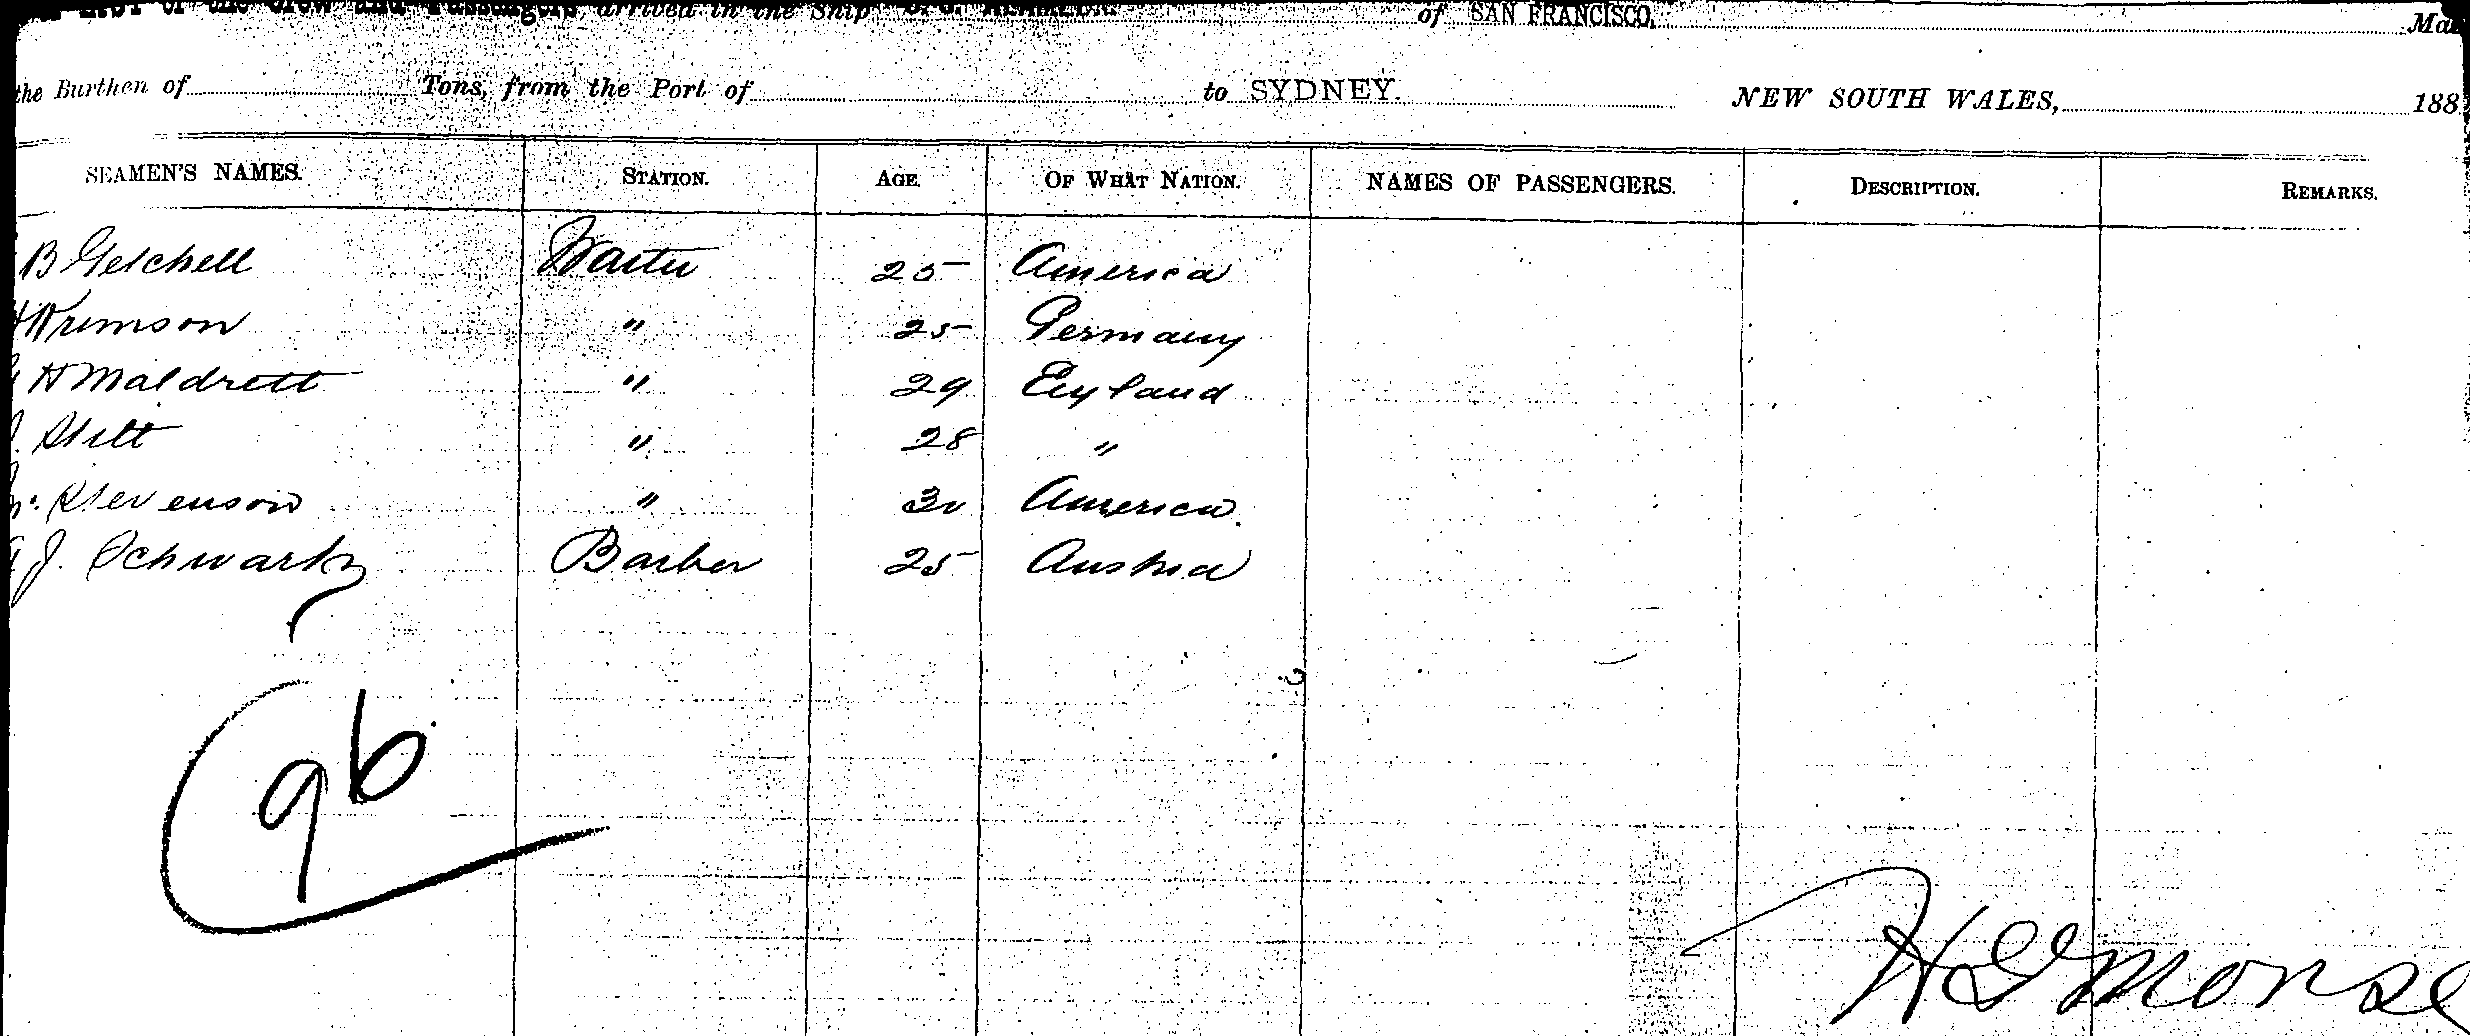 List of the Crew and Passengers, arrived in the Ship S.S. ALAMEDA of SAN FRANCISCO,
the Burthen of Tons, from the Port of to SYDNEY. NEW SOUTH WALES, 188
SEAMEN'S NAMES. STATION. AGE. OF WHAT NATION. NAMES OF PASSENGERS. DESCRIPTION. REMARKS.
B Getchell Waiter 25 America
" 25 Germany
H Maldrett " 29 England
Stilt " 28 "
Stevenson " 30 America.
J. Schwartz Barber 25 Austria
96
H G Morse